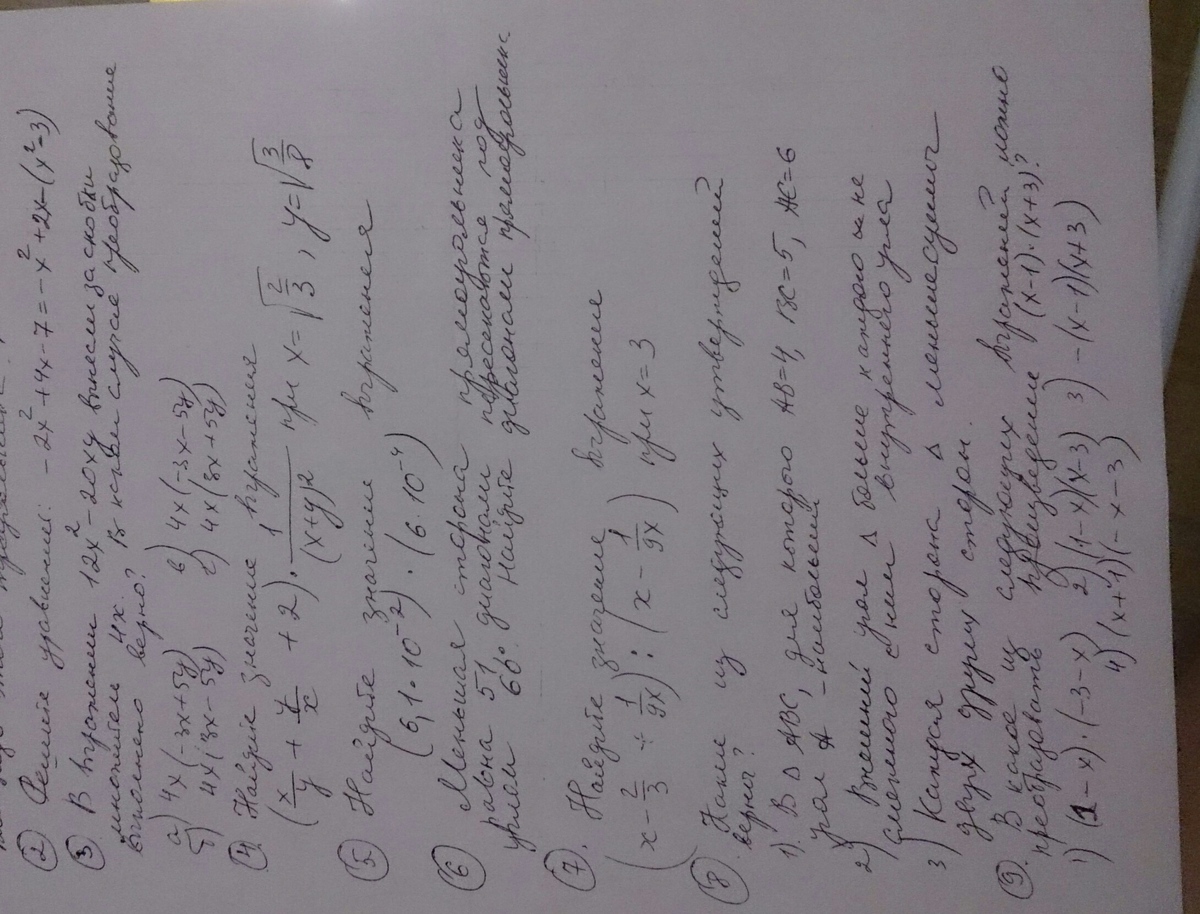 ② Решите уравнение: -2x²+4x-7=-x²+2x-(x²-3)
③ В выражении 12x²-20xy вынесли за скобки
множитель 4x. В каком случае преобразование
выполнено верно?
а) 4x(-3x+5y) в) 4x(-3x-5y)
б) 4x(3x-5y) г) 4x(8x+5y)
④ Найдите значение выражения
(x/y + y/x + 2) · 1/(x+y)² при x=√(2/3), y=√(3/8)
⑤ Найдите значение выражения
(6,1·10⁻²)·(6·10⁻⁴)
⑥ Меньшая сторона прямоугольника
равна 51, диагонали пересекаются под
углом 66°. Найдите диагонали прямоугольника
⑦. Найдите значение выражение
(x - 2/3 ÷ 1/9x) : (x - 1/9x) при x=3
⑧. Какие из следующих утверждений
верно?
1). В Δ ABC, для которого AB=4, BC=5, AC=6
угол A - наибольший
2) Внешний угол Δ больше каждого и не
смежного с ним внутреннего угла
3) Каждая сторона Δ меньше суммы
двух других сторон.
⑨. В какое из следующих выражений можно
преобразовать произведение (x-1)·(x+3)?
1) (1-x)·(-3-x) 2) (1-x)(x-3) 3) -(x-1)(x+3)
4) (x+1)(-x-3)